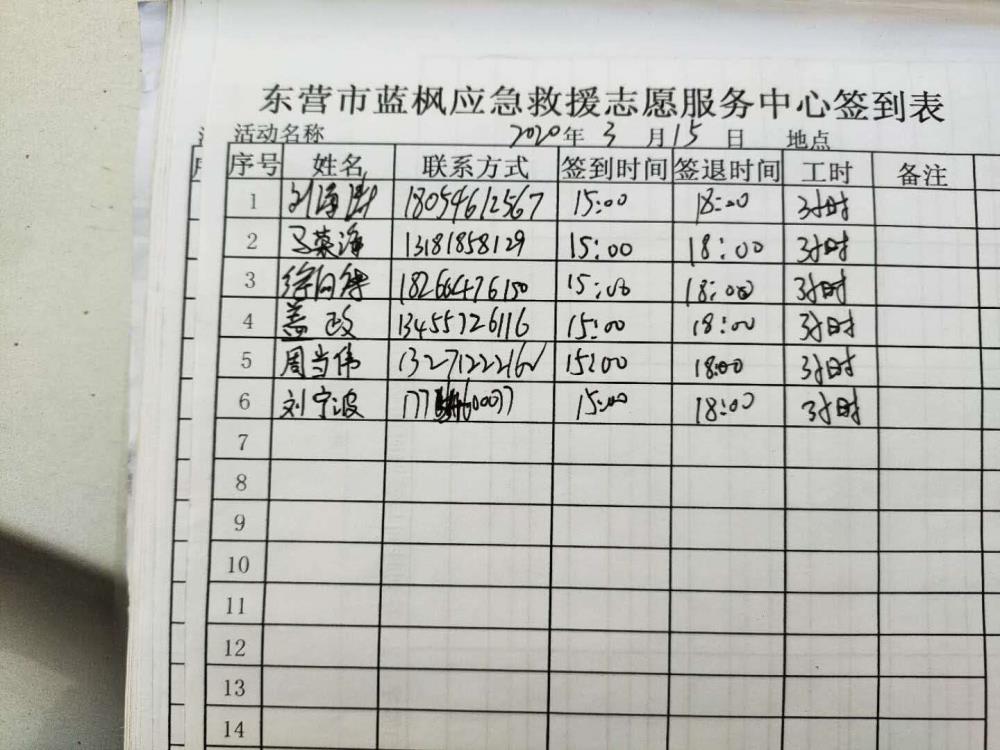 东营市蓝枫应急救援志愿服务中心签到表
活动名称 2020年 3 月 15 日 地点
序号 姓名 联系方式 签到时间 签退时间 工时 备注
1 刘海 18054612567 15:00 18:00 3小时
2 马荣海 13181858129 15:00 18:00 3小时
3 徐向 18266476150 15:00 18:00 3小时
4 盖政 13455726116 15:00 18:00 3小时
5 周当伟 15:00 18:00 3小时
6 刘宁波 15:00 18:00 3小时
7
8
9
10
11
12
13
14